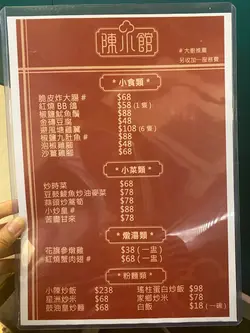 陳小館
# 大廚推薦
另收加一服務費
*小食類*
脆皮炸大腸 # $68
紅燒BB鴿 $58 (1隻)
椒鹽魷魚鬚 $68
金磚豆腐 $48
避風塘雞翼 $108 (6隻)
椒鹽九肚魚 # $88
泡椒雞腳 $48
沙薑雞腳 $68
*小菜類*
炒時菜 $68
豆豉鯪魚炒油麥菜 $78
蒜頭炒萵筍 $78
小炒皇 # $88
苦瓜甘來 $78
*燉湯類*
花旗參燉雞 $38 (一盅)
#紅燒蟹肉翅 # $68 (一盅)
*粉麵類*
小陳炒飯 $238
星洲炒米 $68
豉油皇炒麵 $68
瑤柱蛋白炒飯 $98
家鄉炒米 $78
白飯 $18 (一碗)